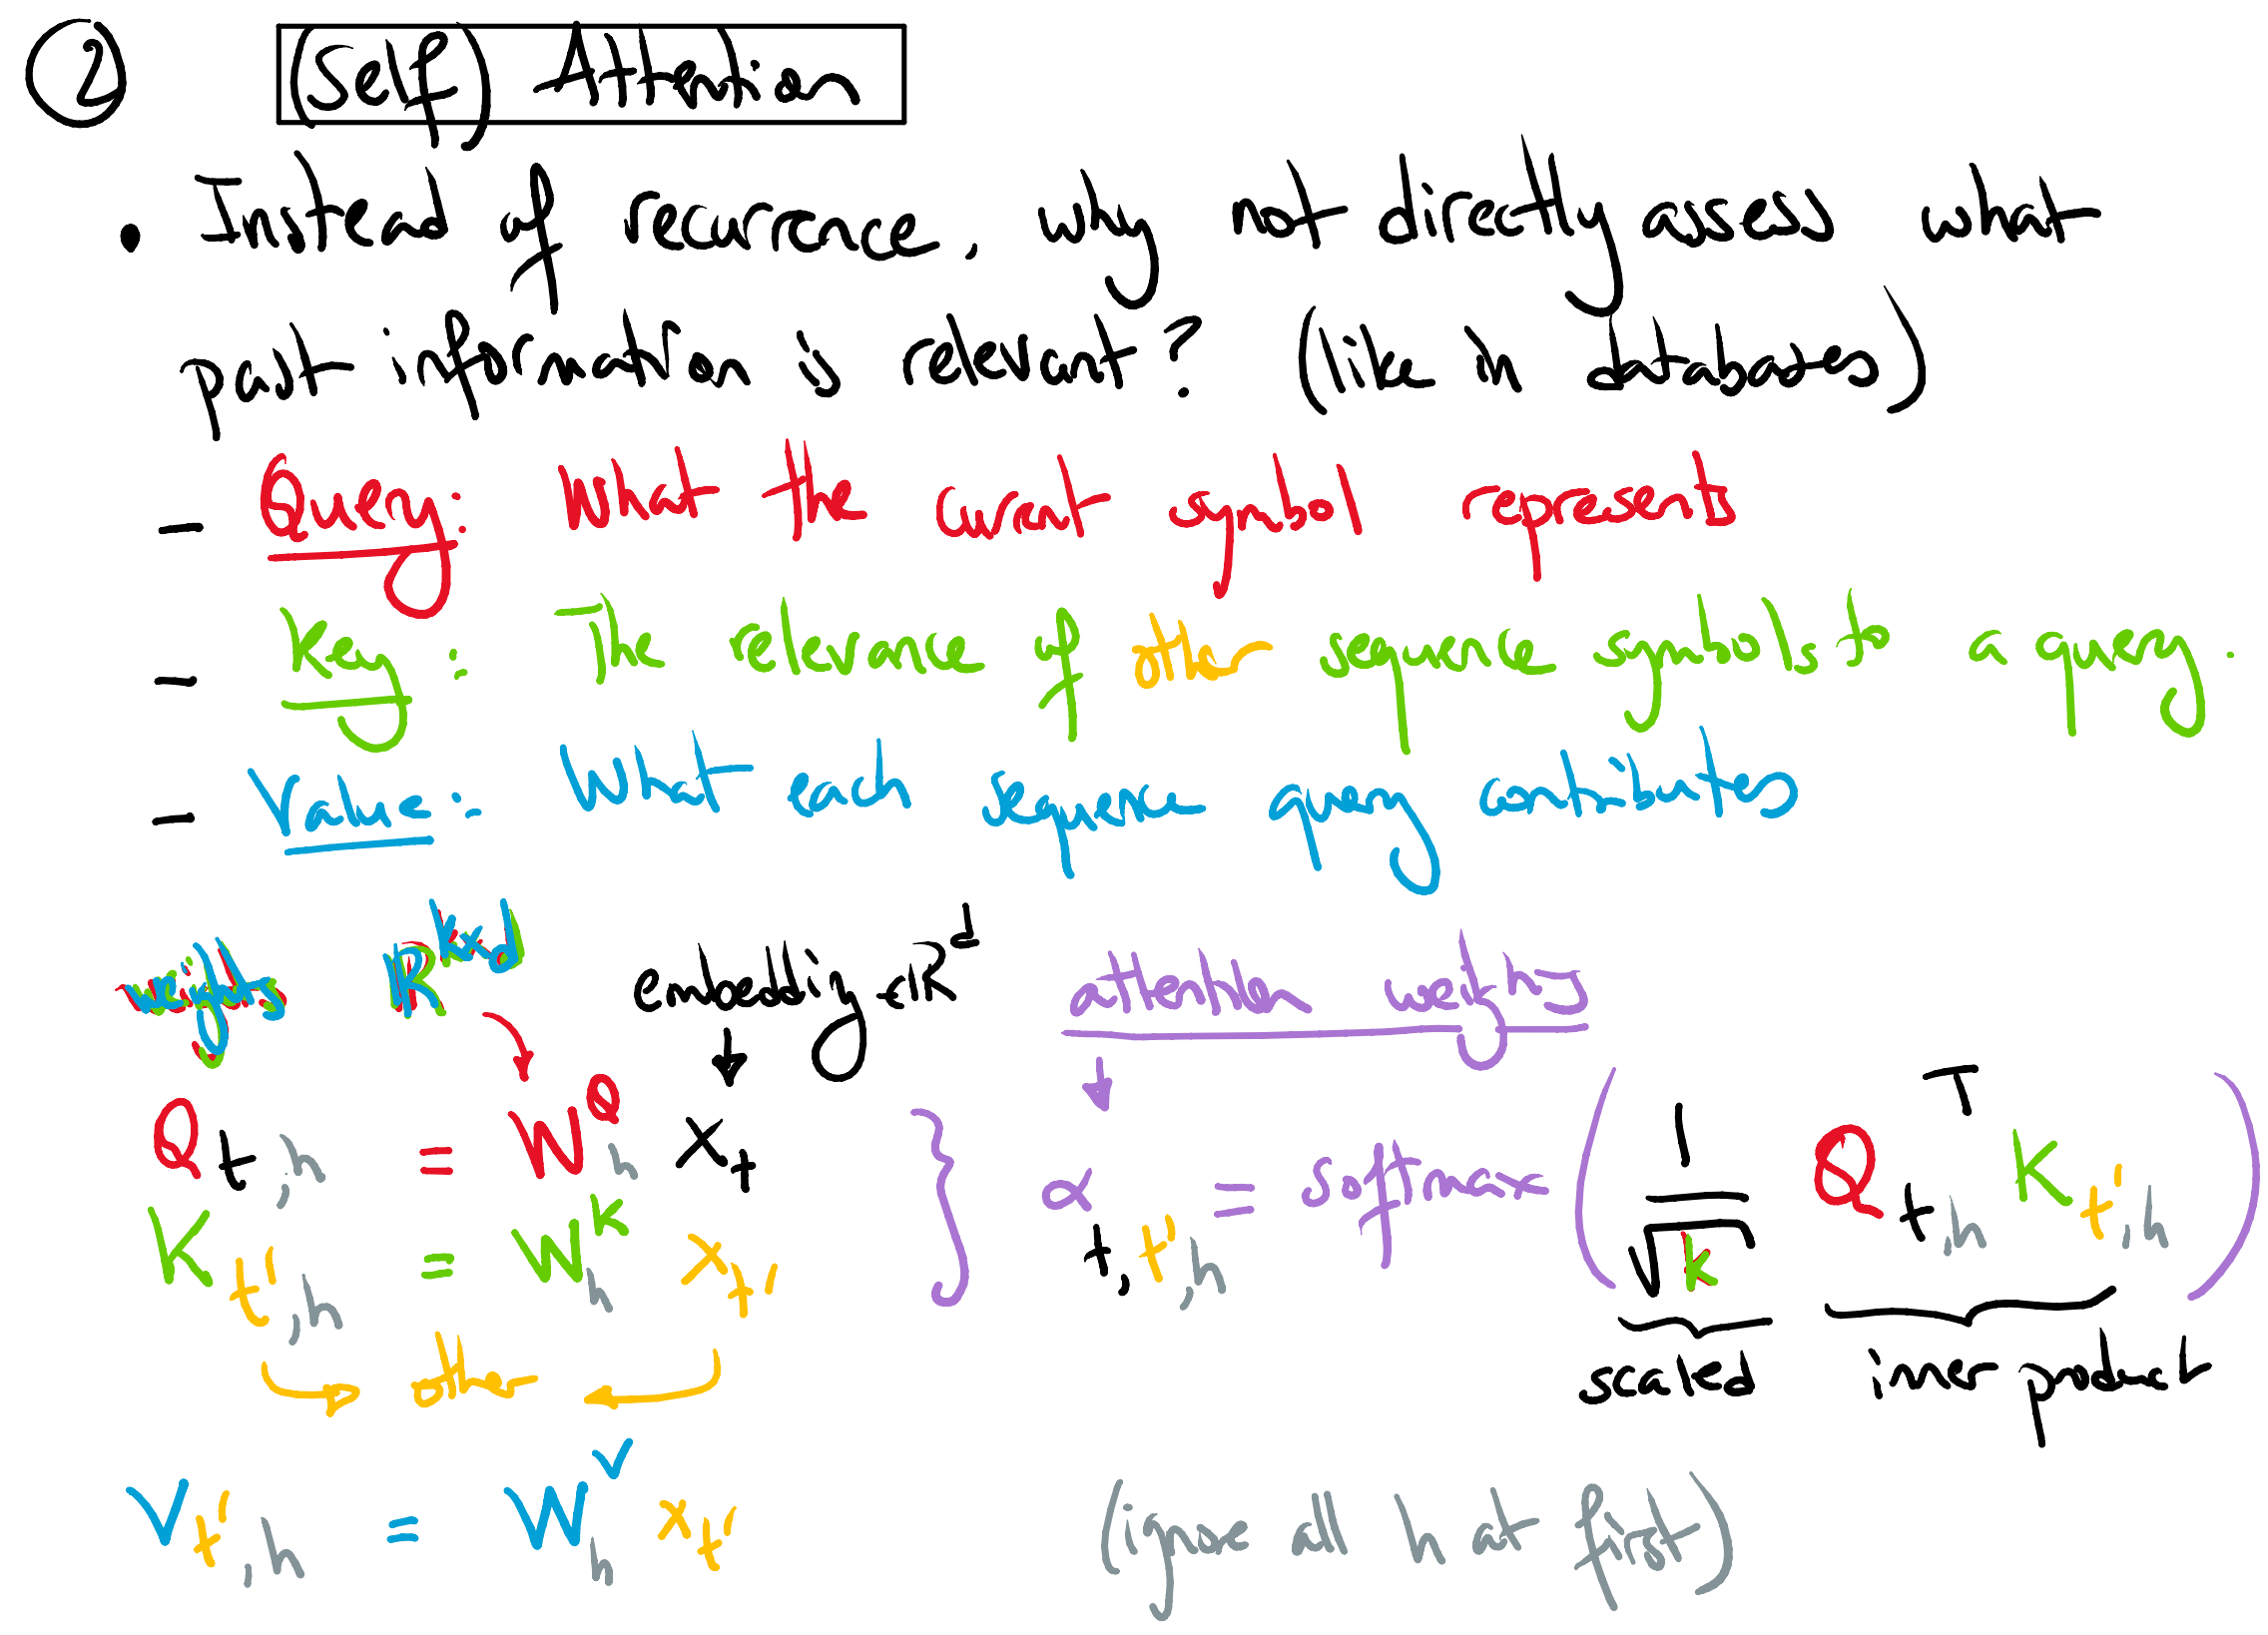 ② (Self) Attention
• Instead of recurrence, why not directly assess what
past information is relevant? (like in databases)
- Query: What the current symbol represents
- Key: The relevance of other sequence symbols to a query.
- Value: What each sequence query contributes
weights ℝ^{k×d} embedding ∈ ℝ^d attention weights
Q_{t,h} = W_h^Q x_t
K_{t',h} = W_h^K x_{t'} } α_{t,t',h} = softmax ( 1/√k Q_{t,h}^T K_{t',h} )
other scaled inner product
V_{t',h} = W_h^V x_{t'} (ignore all h at first)